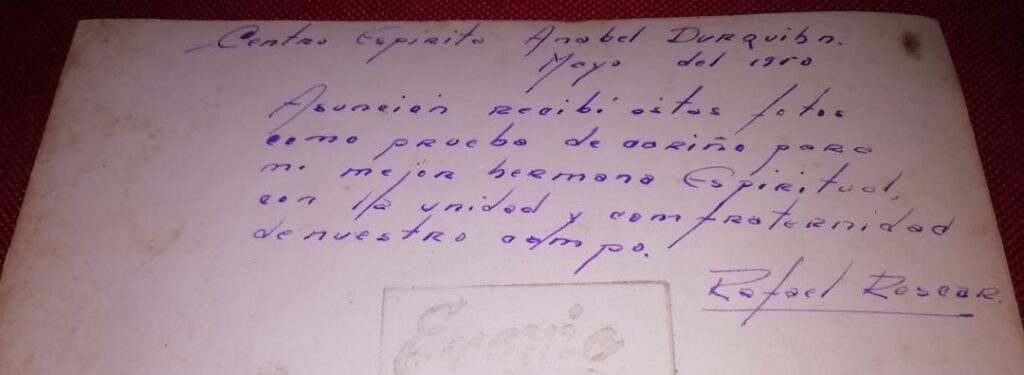 - Centro Espirito Anabel Durquibn.
Mayo del 1950
Asunción recibí estas fotos
como prueba de cariño para
mi mejor hermana Espiritual,
con la unidad y comfraternidad
de nuestro campo.
Rafael Rescar.